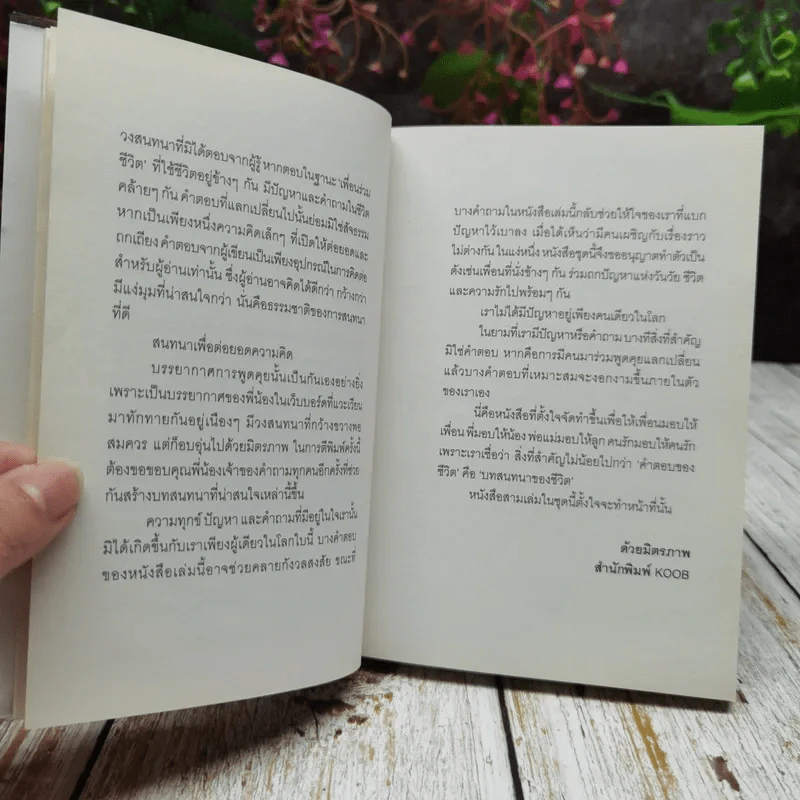 วงสนทนาที่มิได้ตอบจากผู้รู้ หากตอบในฐานะ 'เพื่อนร่วม
ชีวิต' ที่ใช้ชีวิตอยู่ข้างๆ กัน มีปัญหาและคำถามในชีวิต
คล้ายๆ กัน คำตอบที่แลกเปลี่ยนไปนั้นย่อมมิใช่สัจธรรม
หากเป็นเพียงหนึ่งความคิดเล็กๆ ที่เปิดให้ต่อยอดและ
ถกเถียง คำตอบจากผู้เขียนเป็นเพียงอุปกรณ์ในการคิดต่อ
สำหรับผู้อ่านเท่านั้น ซึ่งผู้อ่านอาจคิดได้ดีกว่า กว้างกว่า
มีแง่มุมที่น่าสนใจกว่า นั่นคือธรรมชาติของการสนทนา
ที่ดี
สนทนาเพื่อต่อยอดความคิด
บรรยากาศการพูดคุยนั้นเป็นกันเองอย่างยิ่ง
เพราะเป็นบรรยากาศของพี่น้องในเว็บบอร์ดที่แวะเวียน
มาทักทายกันอยู่เนืองๆ มีวงสนทนาที่กว้างขวางพอ
สมควร แต่ก็อบอุ่นไปด้วยมิตรภาพ ในการตีพิมพ์ครั้งนี้
ต้องขอขอบคุณพี่น้องเจ้าของคำถามทุกคนอีกครั้งที่ช่วย
กันสร้างบทสนทนาที่น่าสนใจเหล่านี้ขึ้น
ความทุกข์ ปัญหา และคำถามที่มีอยู่ในใจเรานั้น
มิได้เกิดขึ้นกับเราเพียงผู้เดียวในโลกใบนี้ บางคำตอบ
ของหนังสือเล่มนี้อาจช่วยคลายกังวลสงสัย ขณะที่
บางคำถามในหนังสือเล่มนี้กลับช่วยให้ใจของเราที่แบก
ปัญหาไว้เบาลง เมื่อได้เห็นว่ามีคนเผชิญกับเรื่องราว
ไม่ต่างกัน ในแง่หนึ่ง หนังสือชุดนี้จึงขออนุญาตทำตัวเป็น
ดังเช่นเพื่อนที่นั่งข้างๆ กัน ร่วมถกปัญหาแห่งวันวัย ชีวิต
และความรักไปพร้อมๆ กัน
เราไม่ได้มีปัญหาอยู่เพียงคนเดียวในโลก
ในยามที่เรามีปัญหาหรือคำถาม บางทีสิ่งที่สำคัญ
มิใช่คำตอบ หากคือการมีคนมาร่วมพูดคุยแลกเปลี่ยน
แล้วบางคำตอบที่เหมาะสมจะงอกงามขึ้นภายในตัว
ของเราเอง
นี่คือหนังสือที่ตั้งใจจัดทำขึ้นเพื่อให้เพื่อนมอบให้
เพื่อน พี่มอบให้น้อง พ่อแม่มอบให้ลูก คนรักมอบให้คนรัก
เพราะเราเชื่อว่า สิ่งที่สำคัญไม่น้อยไปกว่า 'คำตอบของ
ชีวิต' คือ 'บทสนทนาของชีวิต'
หนังสือสามเล่มในชุดนี้ตั้งใจจะทำหน้าที่นั้น
ด้วยมิตรภาพ
สำนักพิมพ์ KOOB